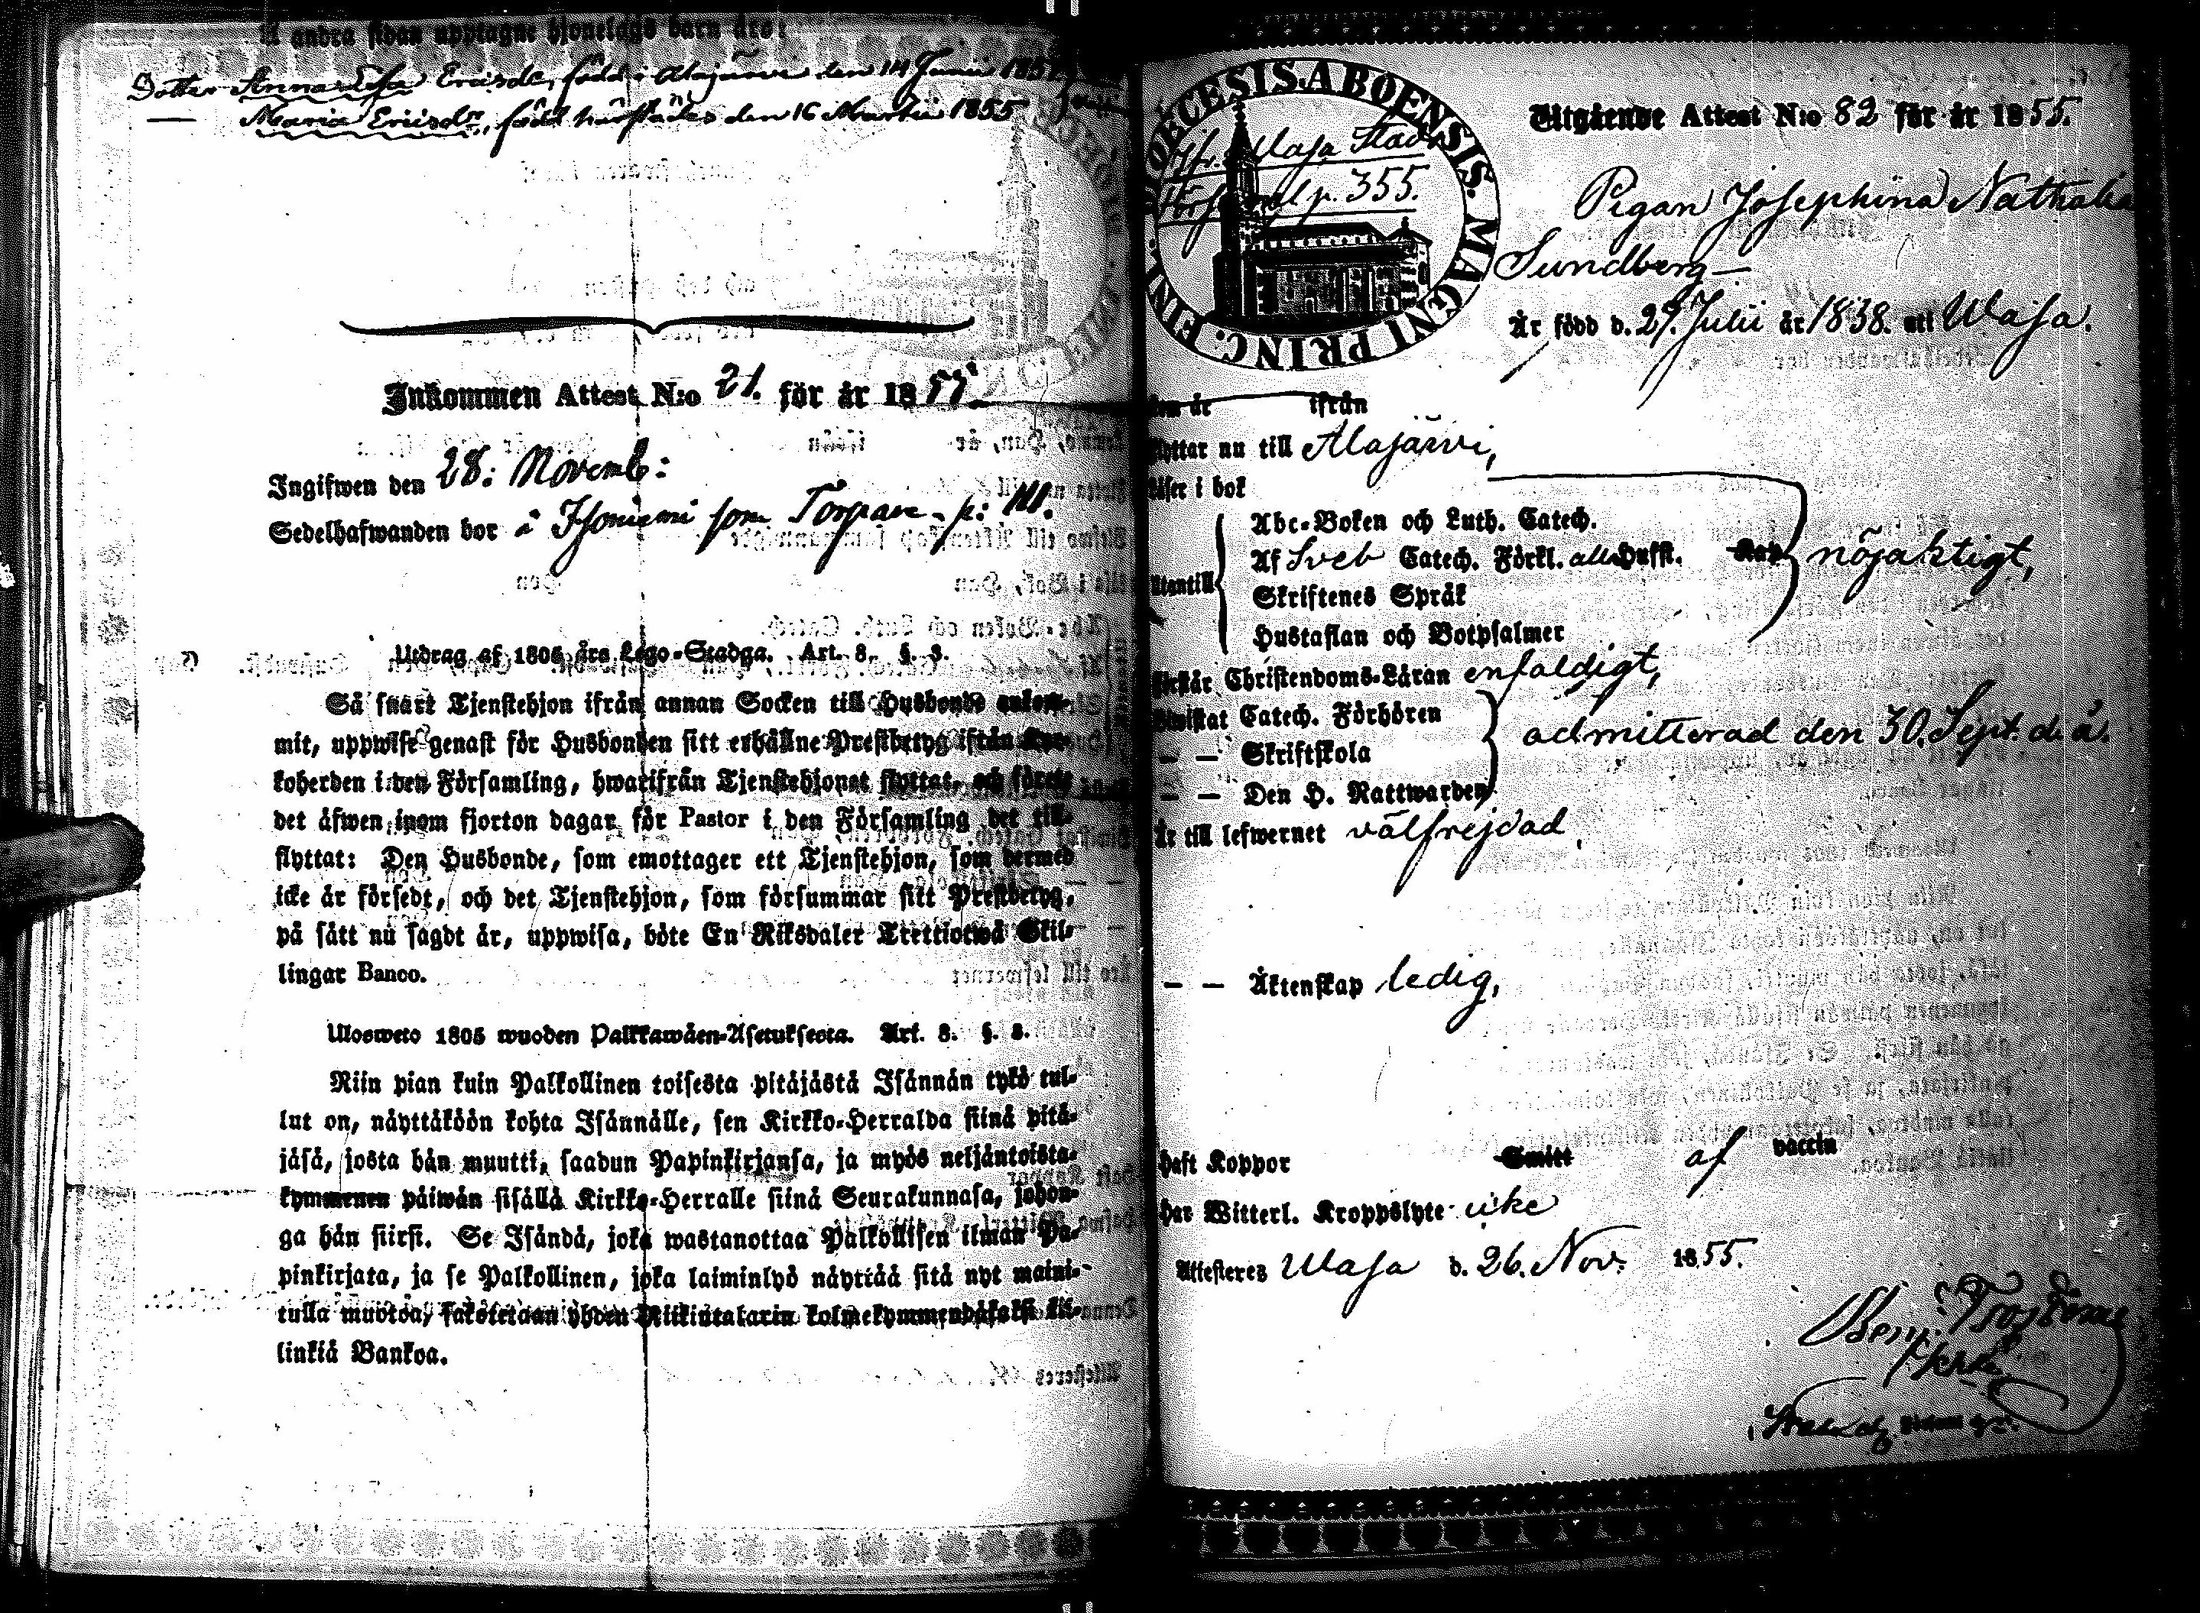 å andra sidan upptagne hjonelags barn äro:
Dotter Anna Lisa Ericsdr, född i Alajärvi den 14 Junii
— Maria Ericsdr, född härstädes den 16 Martii 1855
Inkommen Attest N:o 21. för år 1855.
Ingifwen den 28: Novemb:
Sedelhafwanden bor å Isoniemi som Torpare - p: 111.
Utdrag af 1805 års Lego-Stadga. Art. 8. §. 8.
Så snart Tjenstehjon ifrån annan Socken till Husbonde ankom-
mit, uppwise genast för Husbonden sitt erhållne Prestbetyg ifrån Kyr-
koherden i den Församling, hwarifrån Tjenstehjonet flyttat, och förete
det äfwen inom fjorton dagar för Pastor i den Församling det till-
flyttat: Den Husbonde, som emottager ett Tjenstehjon, som dermed
icke är försedt, och det Tjenstehjon, som försummar sitt Prestbetyg,
på sätt nu sagdt är, uppwisa, böte En Riksdaler Trettiotwå Skil-
lingar Banco.
Ulosweto 1805 wuoden Palkkawäen-Asetuksesta. Art. 8. §. 8.
Niin pian kuin Palkollinen toisesta pitäjästä Isännän tykö tul-
lut on, näyttäköön kohta Isännälle, sen Kirkko-Herralda siinä pitä-
jäsä, josta hän muutti, saadun Papinkirjansa, ja myös neljäntoista-
kymmenen päiwän sisällä Kirkko-Herralle siinä Seurakunnasa, johon-
ga hän siirsi. Se Isändä, joka wastanottaa Palkollisen ilman Pa-
pinkirjata, ja se Palkollinen, joka laiminlyö näyttää sitä nyt maini-
tulla muotoa, sakotetaan yhden Riikintalarin kolmekymmendäkaksi kil-
linkiä Bankoa.
DIOECESIS. ABOENSIS. MAGNI PRINC. FINL.
Wasa Stads
p. 355.
Utgående Attest N:o 82 för år 1855.
Pigan Josephina Nathalia
Sundberg —
Är född d. 29. Julii år 1838. uti Wasa.
ifrån
flyttar nu till Alajärvi,
läser i bok
Abc-Boken och Luth. Catech.
Af Sveb Catech. Förkl. alla Hufst. Kap nöjaktigt,
utantill Skriftenes Språk
Hustaflan och Botpsalmer
förstår Christendoms-Läran enfaldigt,
bewistat Catech. Förhören
— — Skriftskola admitterad den 30. Sept. d. å.
— — Den H. Nattwarden
är till lefwernet välfrejdad
— — Äktenskap ledig,
haft Koppor Smitt af vaccin
har Witterl. Kroppslyte icke
Attesteres Wasa d. 26. Nov. 1855.